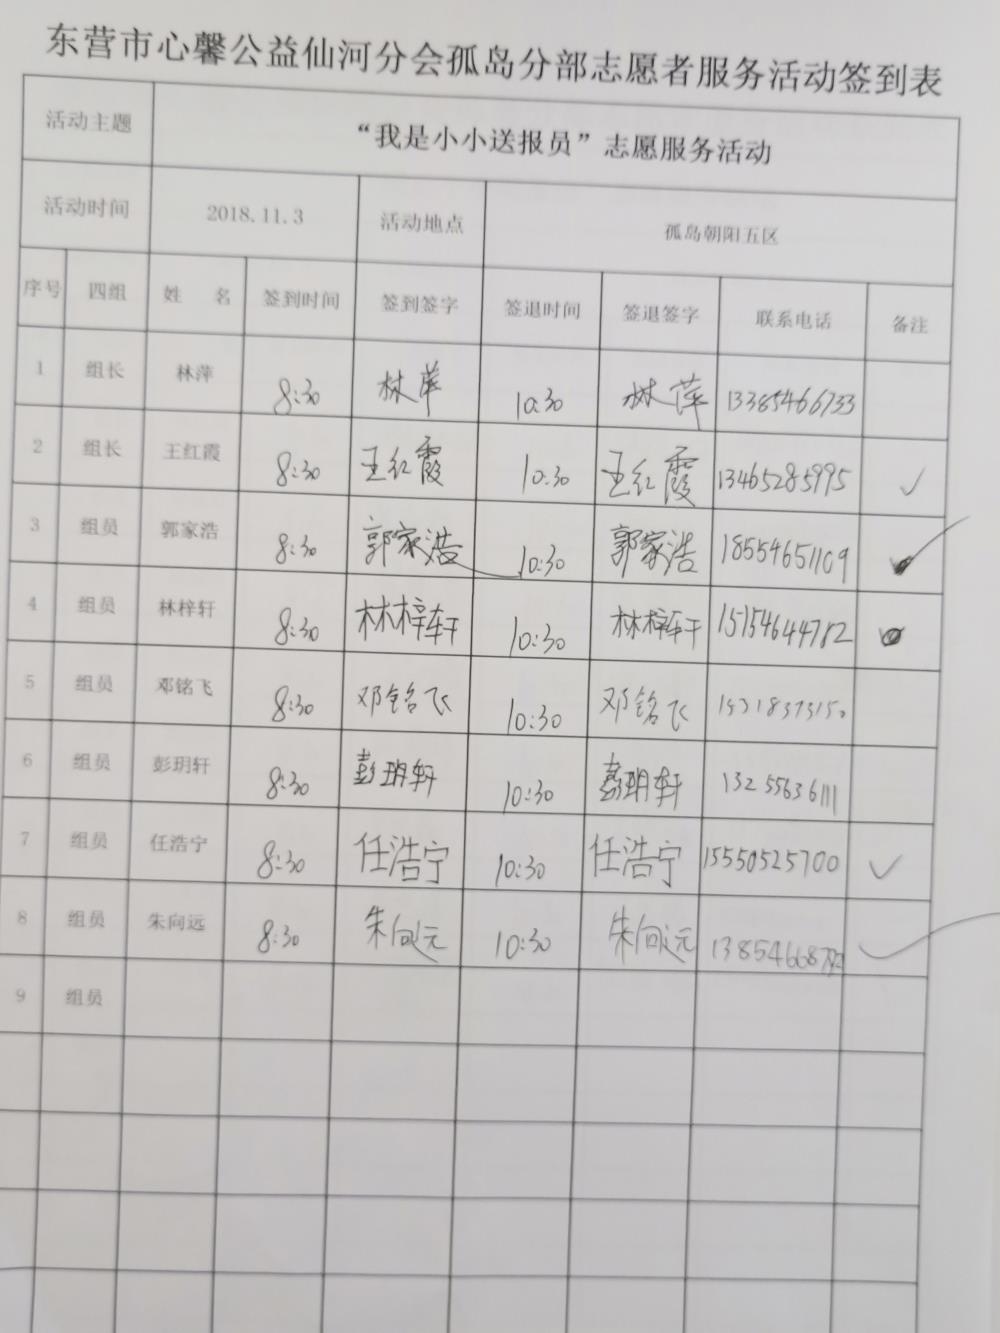 东营市心馨公益仙河分会孤岛分部志愿者服务活动签到表
活动主题 “我是小小送报员”志愿服务活动
活动时间 2018.11.3 活动地点 孤岛朝阳五区
序号 四组 姓 名 签到时间 签到签字 签退时间 签退签字 联系电话 备注
1 组长 林萍 8:30 林萍 10:30 林萍 13385466733
2 组长 王红霞 8:30 王红霞 10:30 王红霞 13465285995 ✓
3 组员 郭家浩 8:30 郭家浩 10:30 郭家浩 18554651109
4 组员 林梓轩 8:30 林梓轩 10:30 林梓轩 15154644782
5 组员 邓铭飞 8:30 邓铭飞 10:30 邓铭飞
6 组员 彭玥轩 8:30 彭玥轩 10:30 彭玥轩 13255636111
7 组员 任浩宁 8:30 任浩宁 10:30 任浩宁 15550525700 ✓
8 组员 朱向远 8:30 朱向远 10:30 朱向远 ✓
9 组员